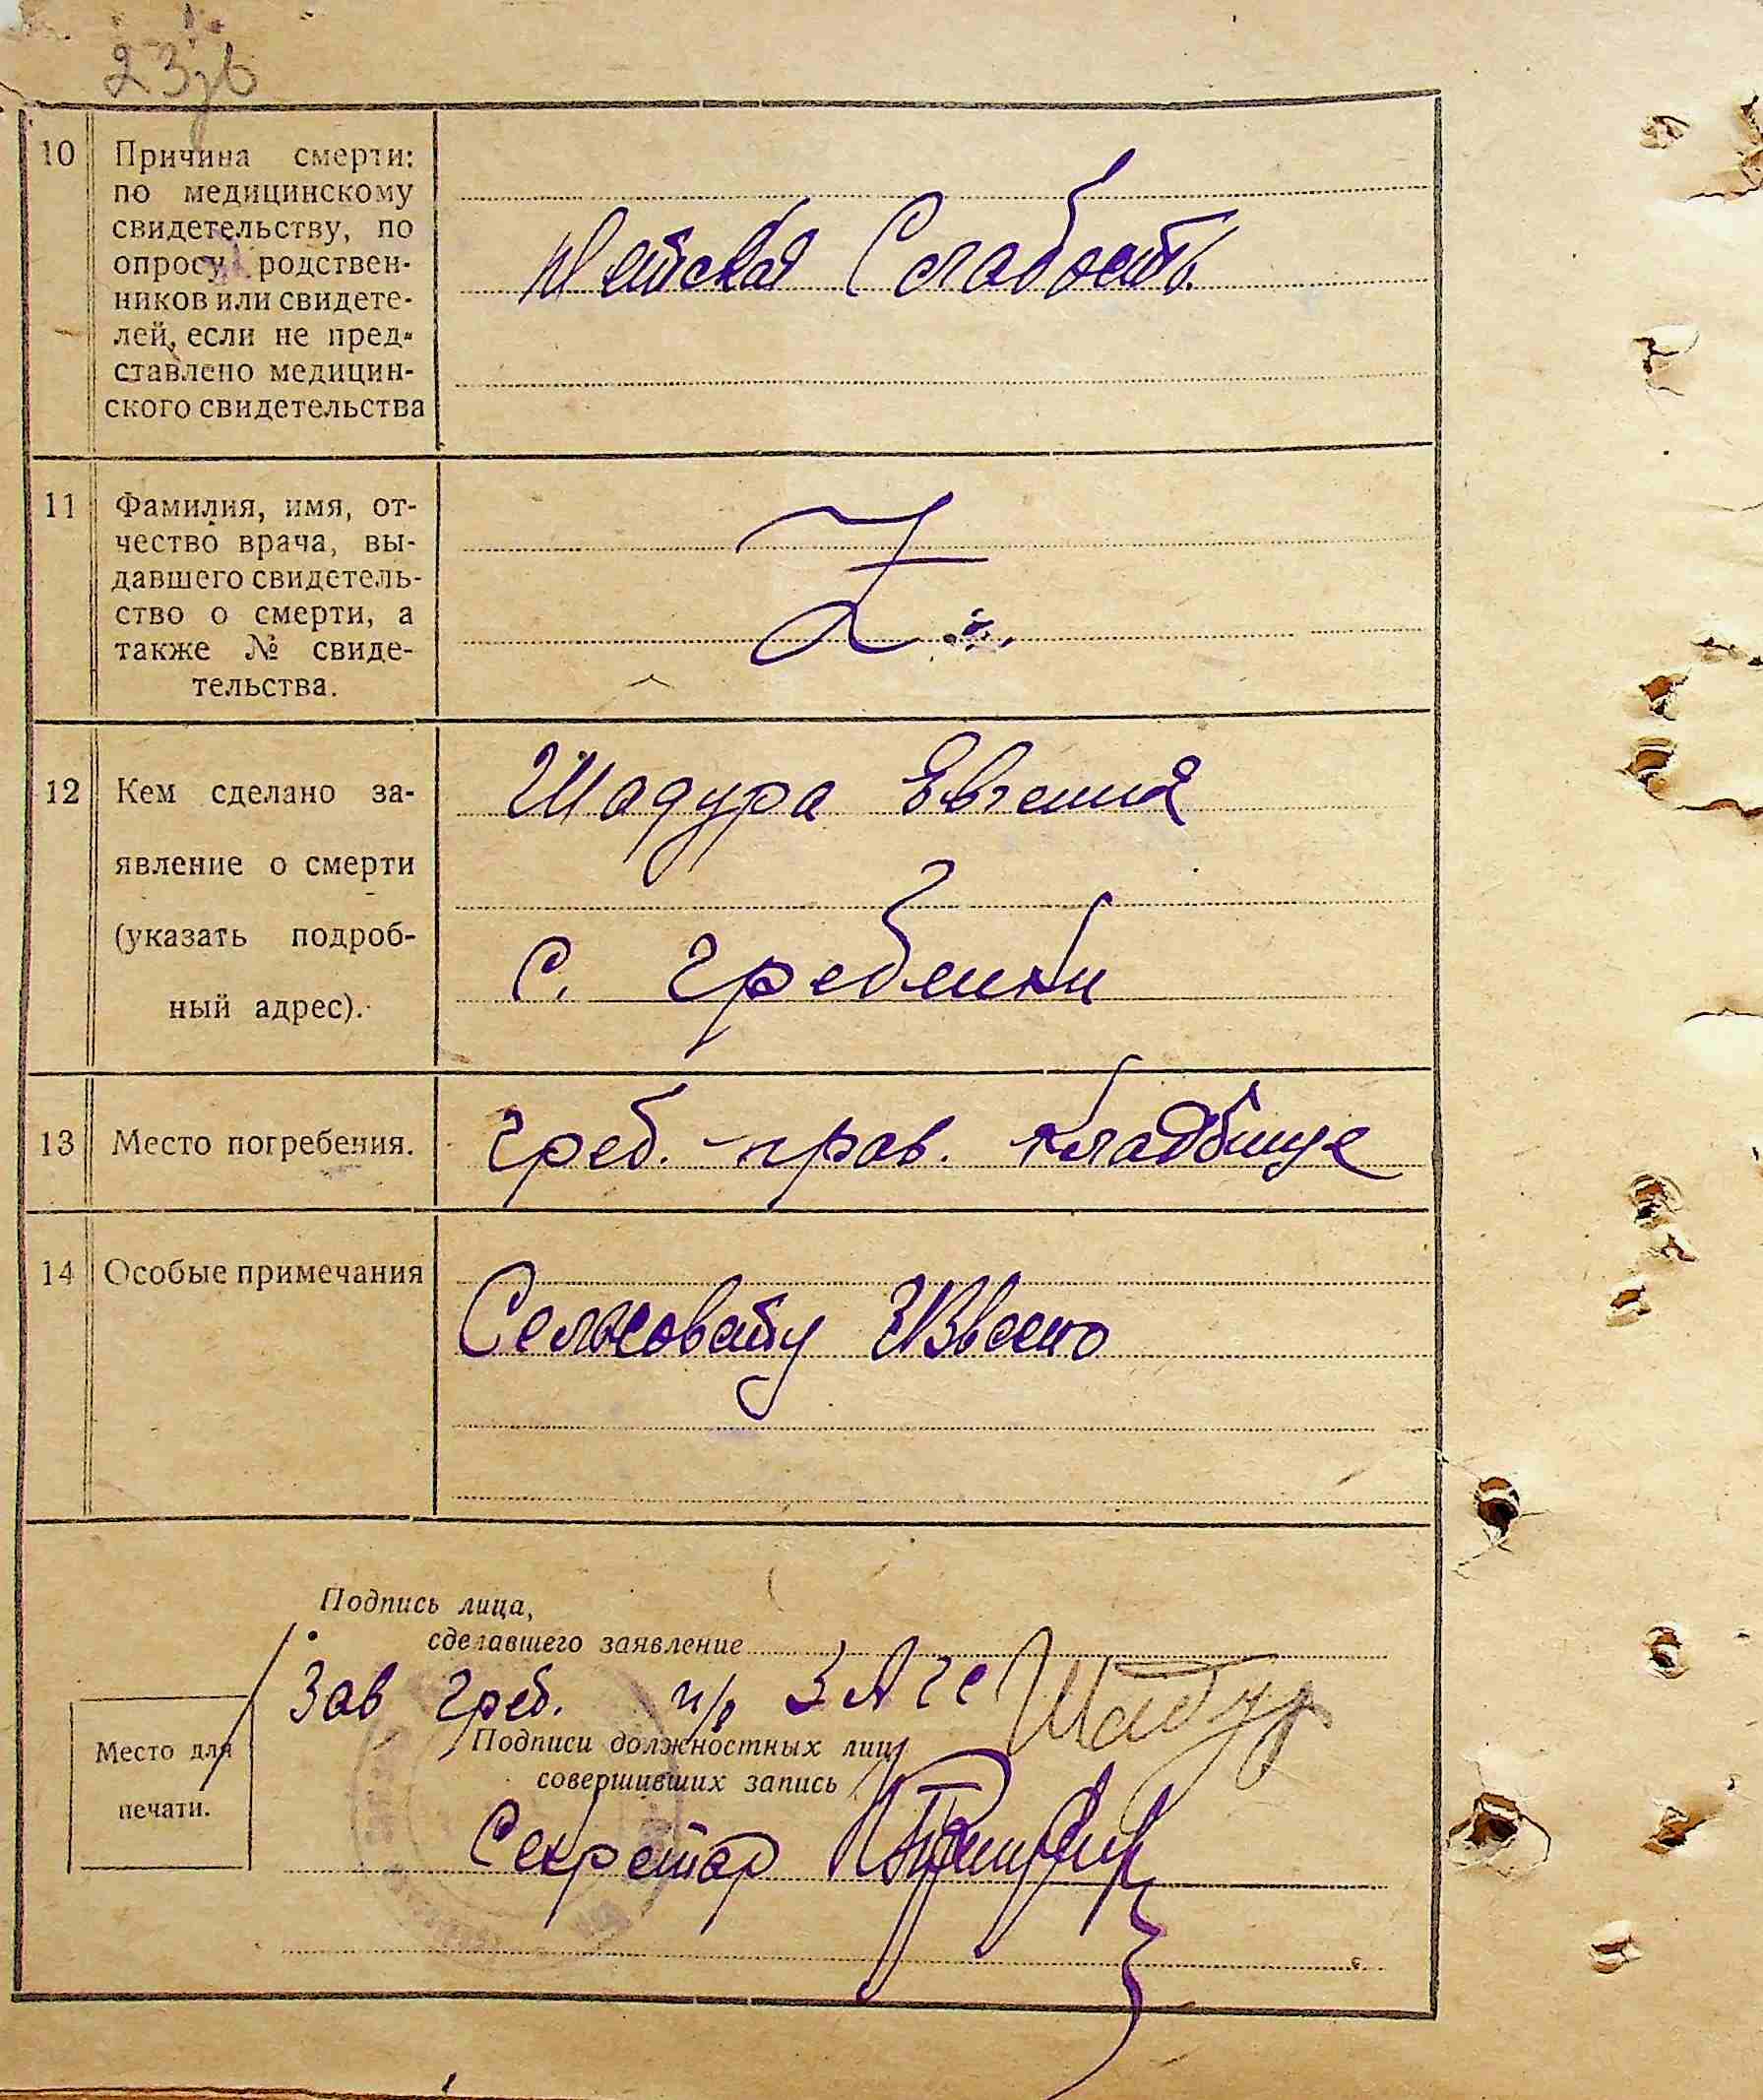 10 Причина смерти:
по медицинскому
свидетельству, по
опросу родствен-
ников или свидете-
лей, если не пред-
ставлено медицин-
ского свидетельства
Детская Слабость.
11 Фамилия, имя, от-
чество врача, вы-
давшего свидетель-
ство о смерти, а
также № свиде-
тельства.
Z
12 Кем сделано за-
явление о смерти
(указать подроб-
ный адрес).
Шадура Евгения
с. Гребенки
13 Место погребения.
Греб. прав. кладбище
14 Особые примечания
Подпись лица,
сделавшего заявление
Зав Греб. ЗАГС Шадур
Подписи должностных лиц,
совершивших запись
Место для
печати.
Секретар